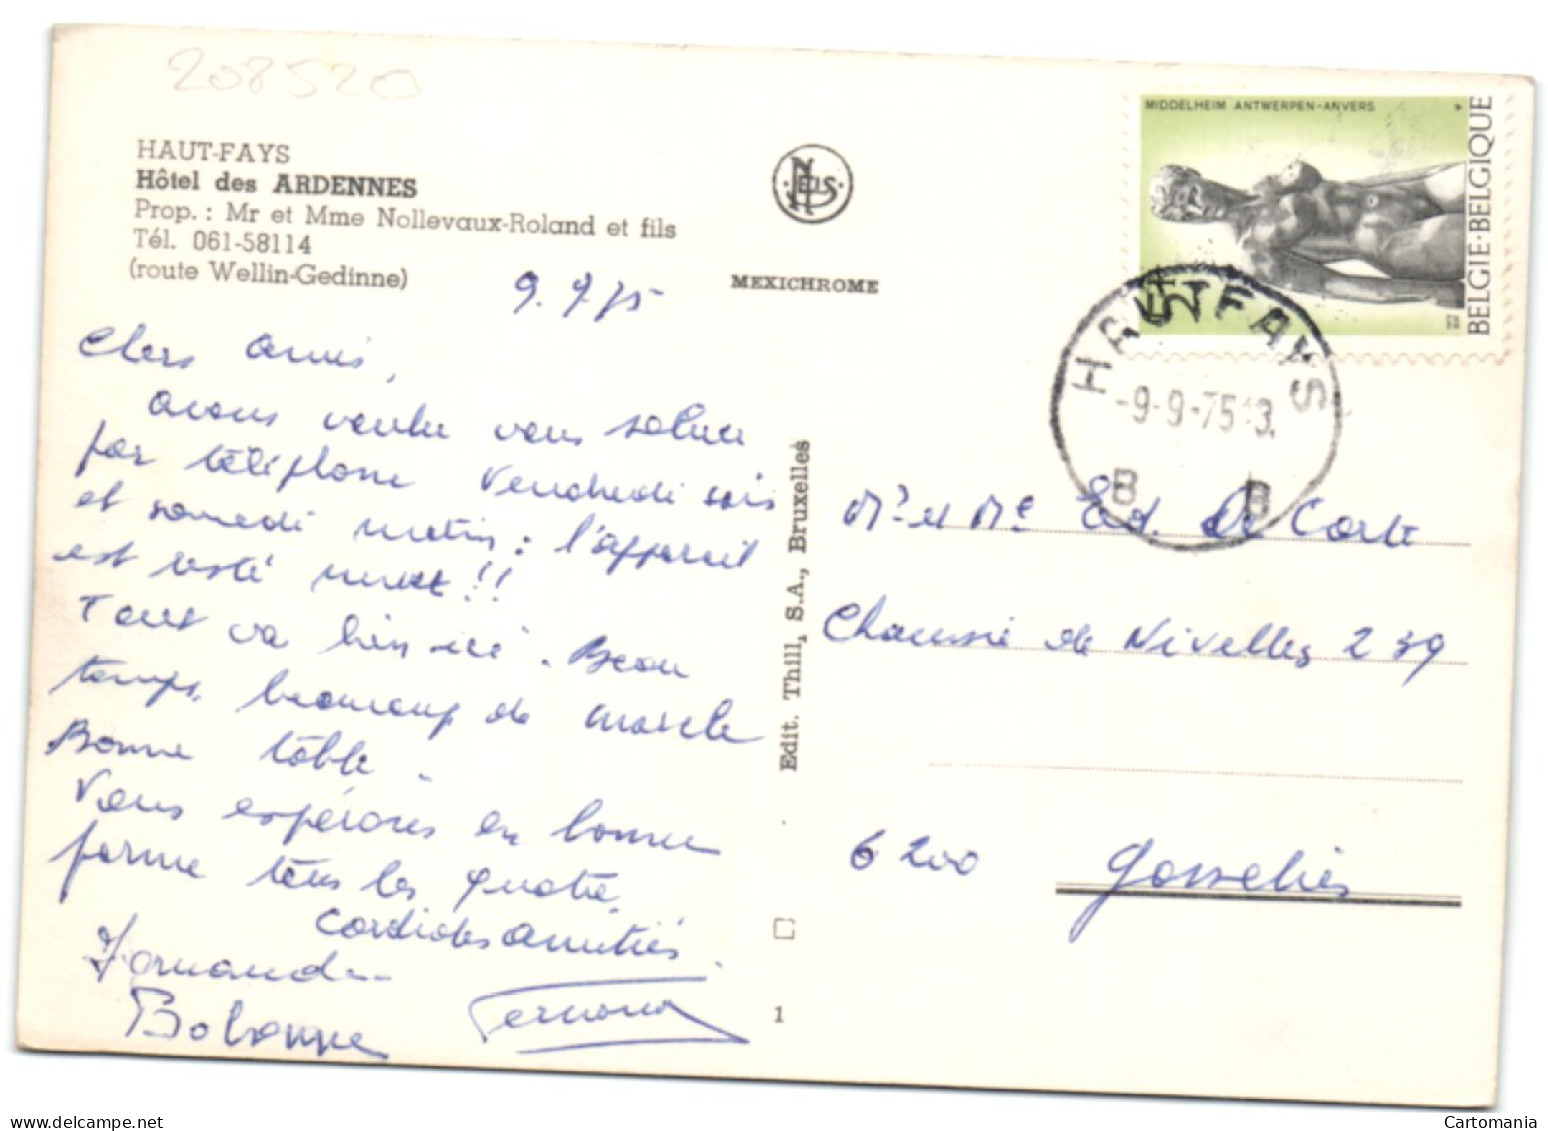 208520
HAUT-FAYS
Hôtel des ARDENNES
Prop. : Mr et Mme Nollevaux-Roland et fils
Tél. 061-58114
(route Wellin-Gedinne)
NELS
MEXICHROME
9.9.75
Chers amis,
avons voulu vous saluer
par téléphone vendredi soir
et samedi matin : l'appareil
est resté muet !!
Tout va bien ici. Beau
temps, beaucoup de marche
Bonne table.
Vous espérons en bonne
forme tous les quatre.
Cordiales amitiés.
Fernande
Bobonne
Fernand
Edit. Thill, S.A., Bruxelles
1
MIDDELHEIM ANTWERPEN-ANVERS
BELGIE-BELGIQUE
HAUT-FAYS
-9-9-75 13
B B
Mr et Me Ed. De Corte
Chaussée de Nivelles 239
6200 Gosselies
Cartomania
www.delcampe.net